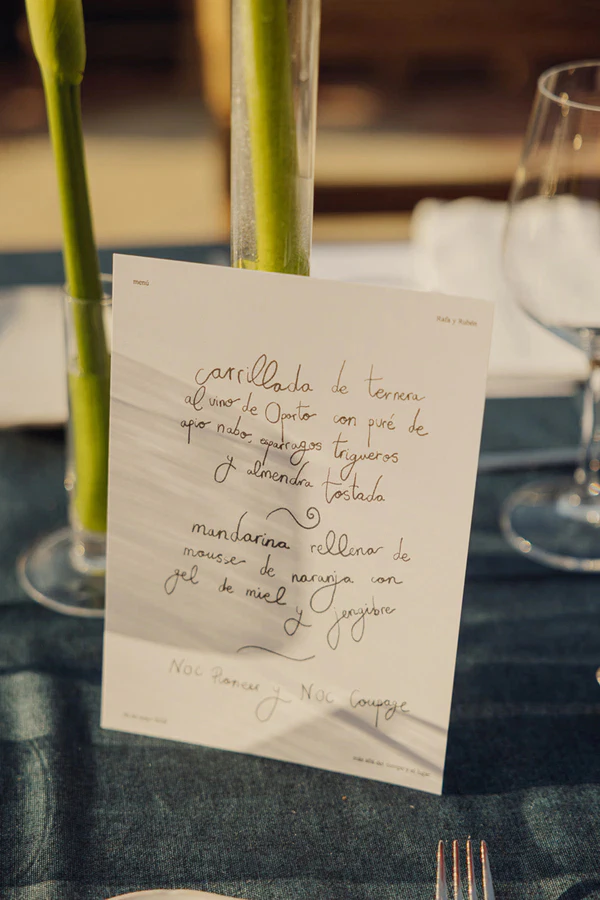 menú
Rafa y Rubén
carrillada de ternera
al vino de Oporto con puré de
apio nabo, espárragos trigueros
y almendra tostada
mandarina rellena de
mousse de naranja con
gel de miel y jengibre
Noc Pioneer y Noc Coupage
más allá del tiempo y el lugar